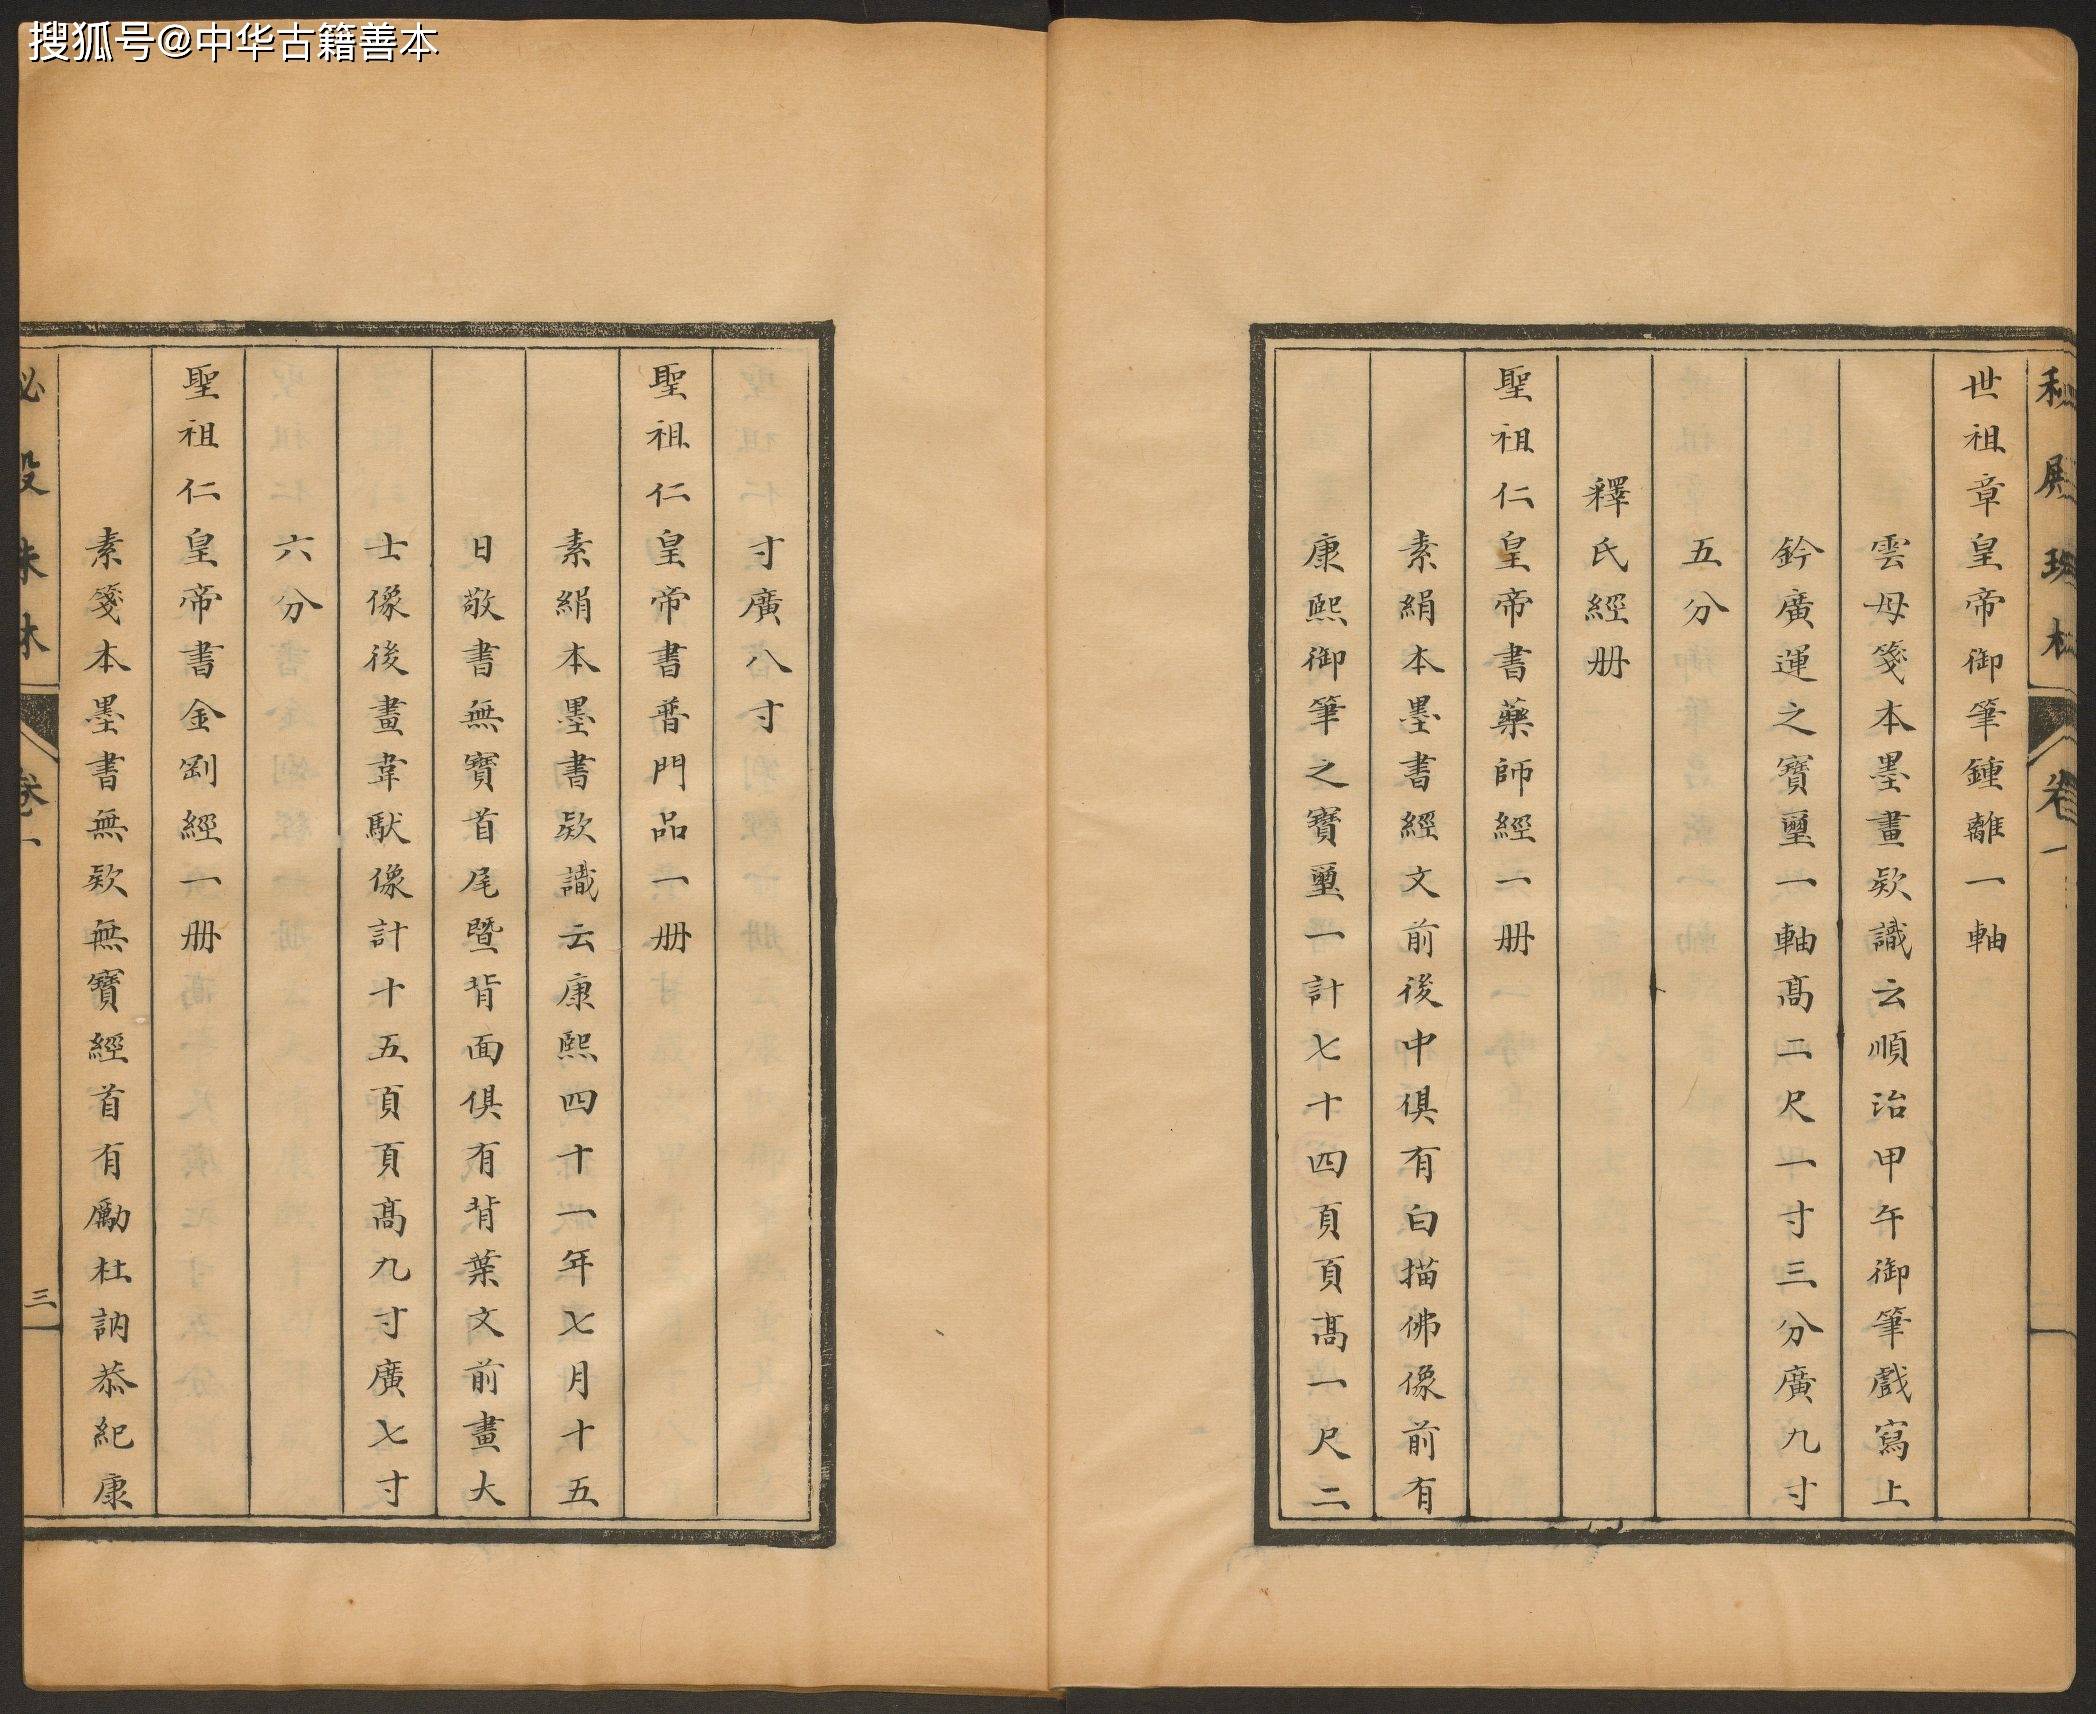 搜狐号@中华古籍善本
世祖章皇帝御筆鍾離一軸
雲母箋本墨畫欵識云順治甲午御筆戲寫上
鈐廣運之寶璽一軸髙二尺一寸三分廣九寸
五分
釋氏經册
聖祖仁皇帝書藥師經一册
素絹本墨書經文前後中俱有白描佛像前有
康熙御筆之寶璽一計七十四頁頁髙一尺二
寸廣八寸
聖祖仁皇帝書普門品一册
素絹本墨書欵識云康熙四十一年七月十五
日敬書無寶首尾曁背面俱有背葉文前畫大
士像後畫韋馱像計十五頁頁髙九寸廣七寸
六分
聖祖仁皇帝書金剛經一册
素箋本墨書無欵無寶經首有勵杜訥恭紀康
卷一
三